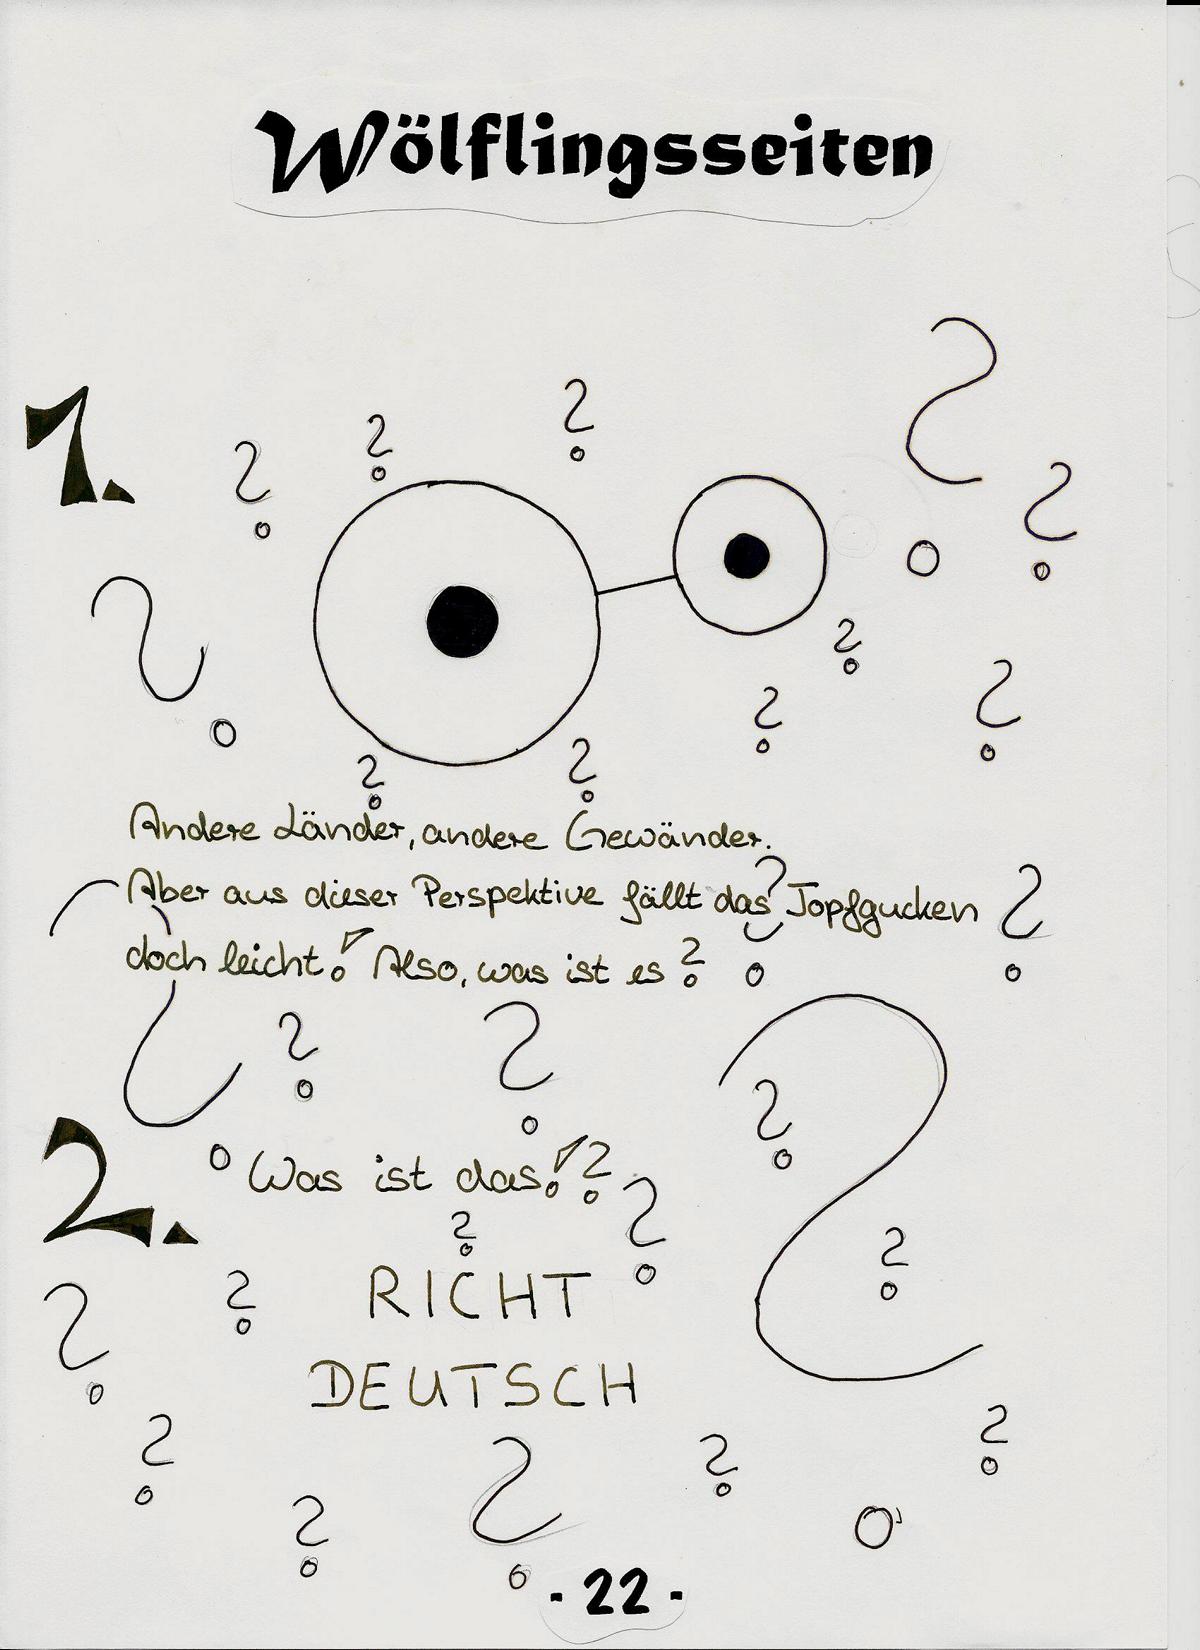 Wölflingsseiten
1.
Andere Länder, andere Gewänder.
Aber aus dieser Perspektive fällt das Topfgucken
doch leicht! Also, was ist es?
2.
Was ist das!?
RICHT
DEUTSCH
- 22 -